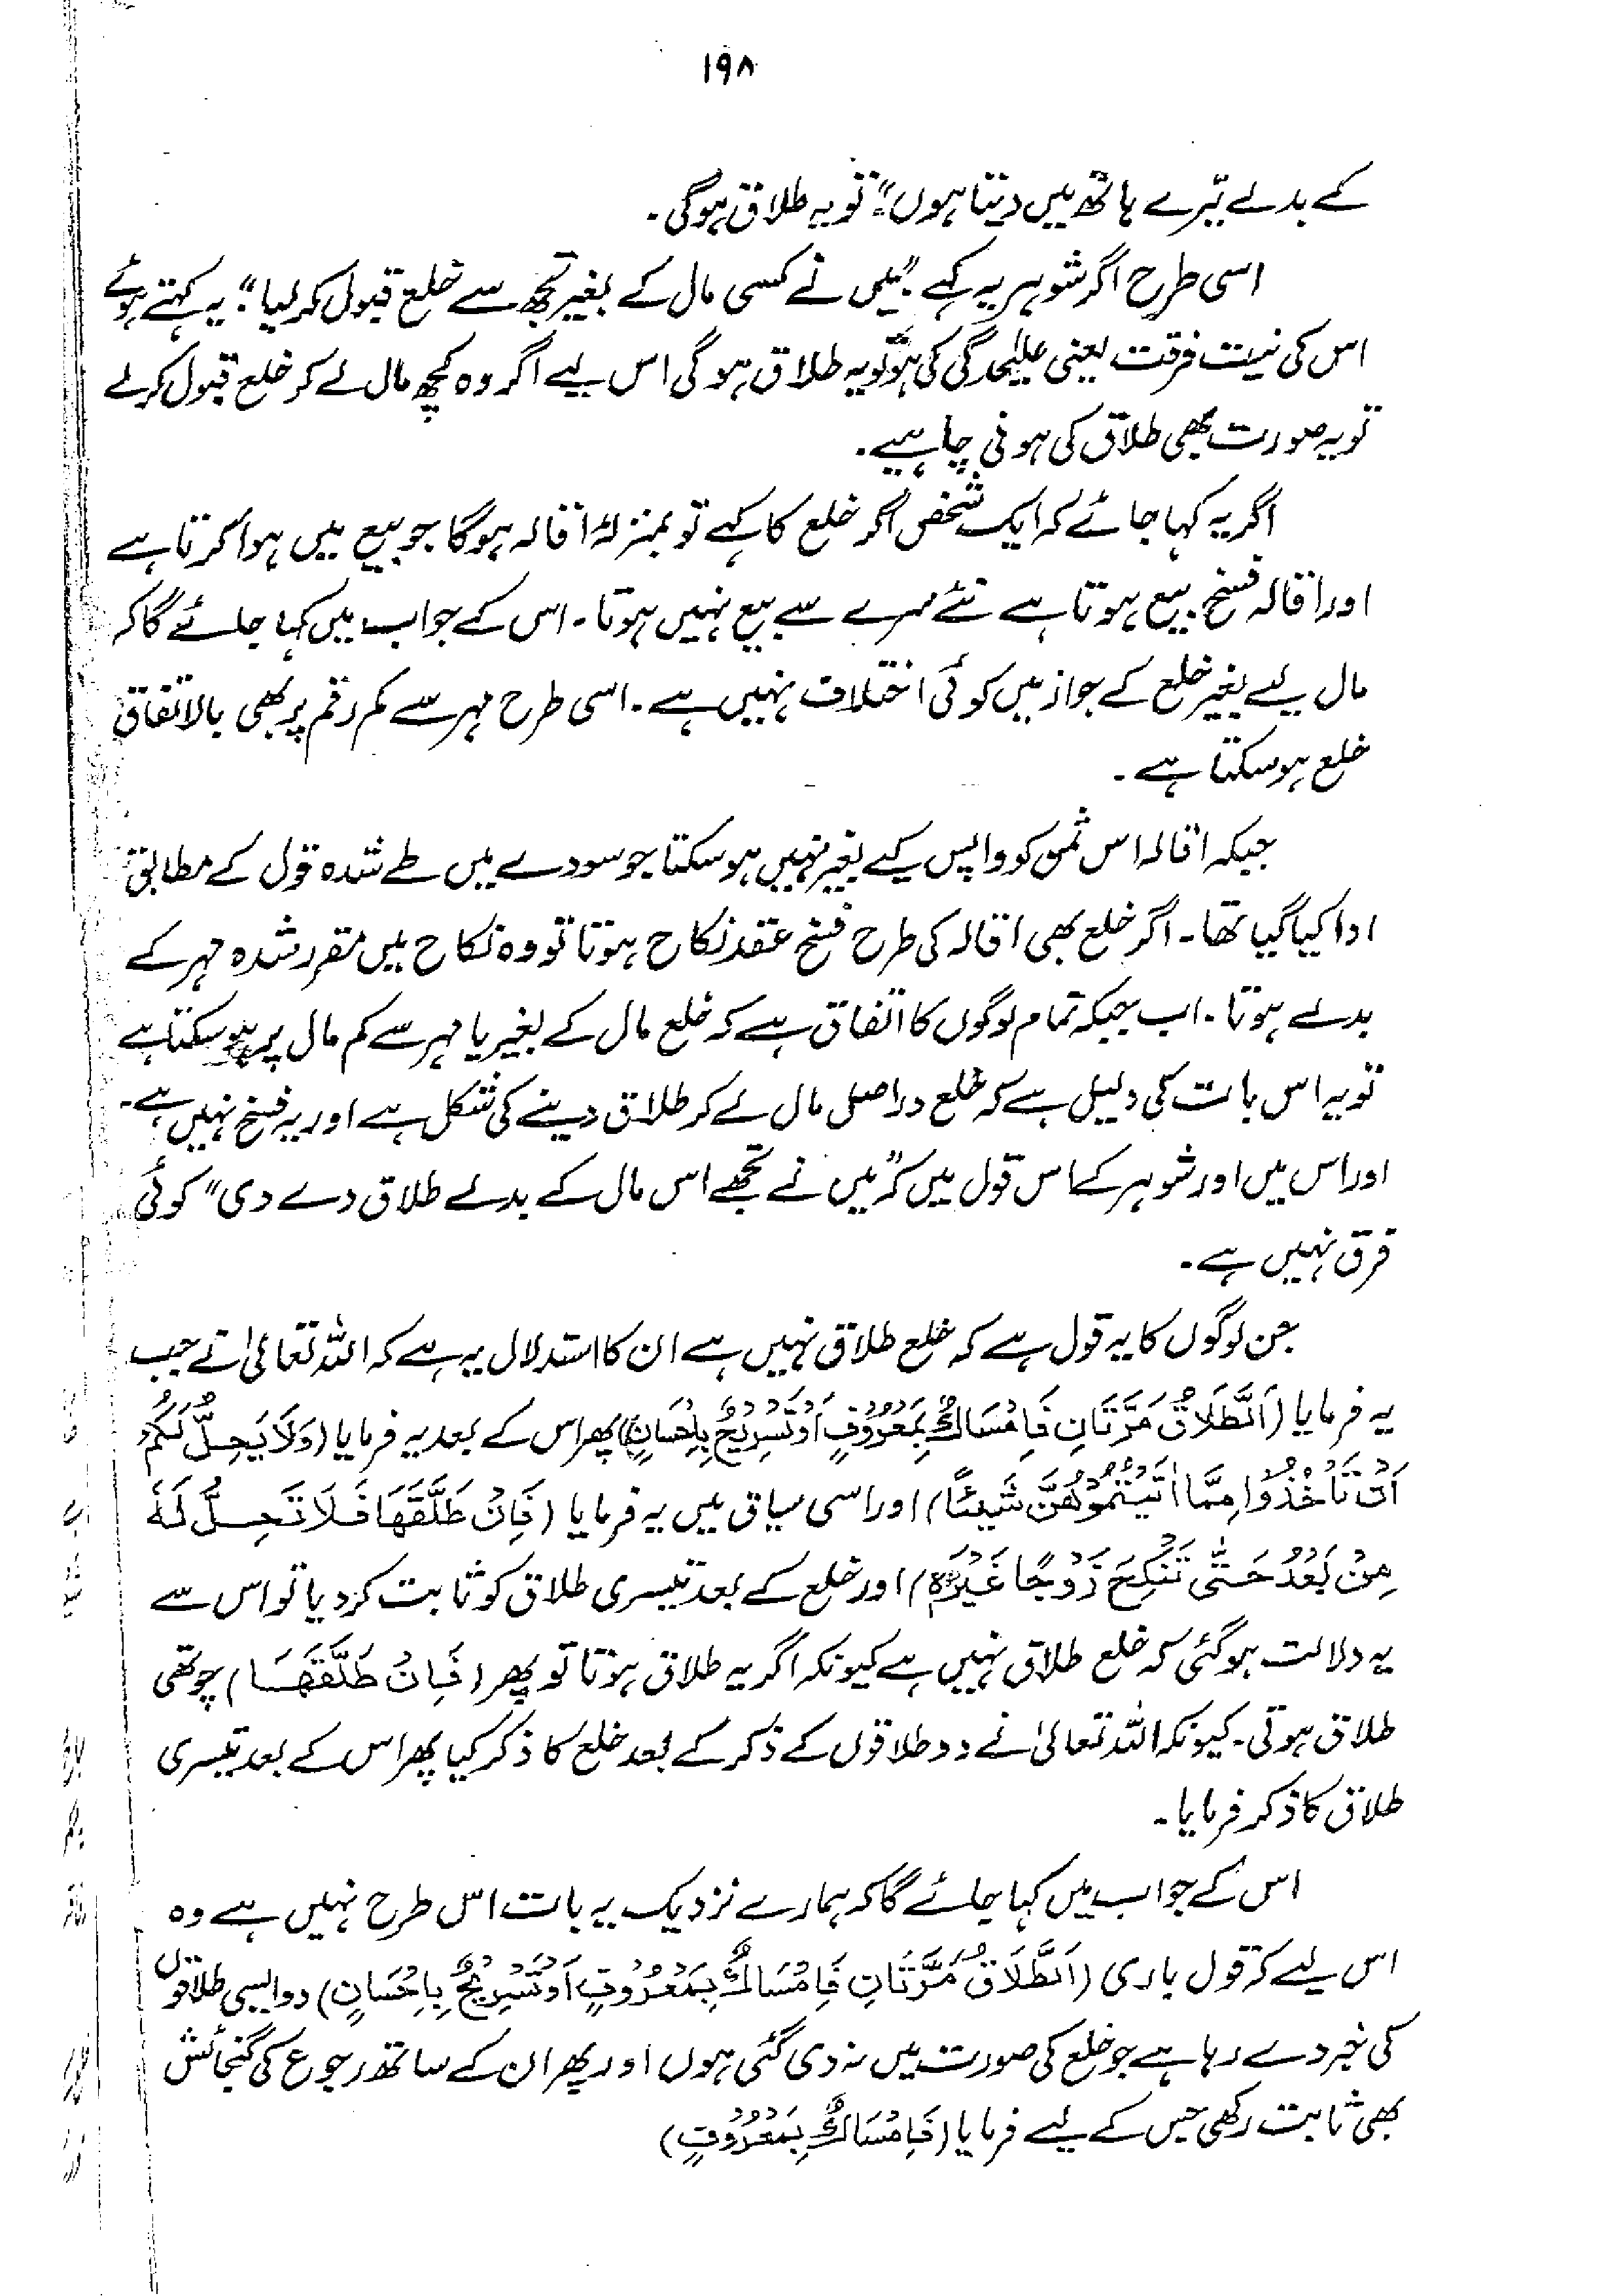 ۱۹۸
کے بدلے تیرے ہاتھ میں دیتا ہوں"؛ تو یہ طلاق ہوگی۔
اسی طرح اگر شوہر یہ کہے "میں نے کسی مال کے بغیر تجھ سے خلع قبول کر لیا"؛ یہ کہتے ہوئے
اس کی نیت فرقت یعنی علیٰحدگی کی ہو تو یہ طلاق ہوگی اس لیے اگر وہ کچھ مال لے کر خلع قبول کر لے
تو یہ صورت بھی طلاق کی ہونی چاہیے۔
اگر یہ کہا جائے کہ ایک شخص اگر خلع کا کہے تو بمنزلۂ اقالہ ہوگا جو بیع میں ہوا کرتا ہے
اور اقالہ فسخِ بیع ہوتا ہے نئے سرے سے بیع نہیں ہوتا۔ اس کے جواب میں کہا جائے گا کہ
مال لیے بغیر خلع کے جواز میں کوئی اختلاف نہیں ہے۔ اسی طرح مہر سے کم رقم پر بھی بالاتفاق
خلع ہو سکتا ہے۔
جبکہ اقالہ اس ثمن کو واپس کیے بغیر نہیں ہو سکتا جو سودے میں طے شدہ قول کے مطابق
ادا کیا گیا تھا۔ اگر خلع بھی اقالہ کی طرح فسخِ عقد نکاح ہوتا تو وہ نکاح میں مقرر شدہ مہر کے
بدلے ہوتا۔ اب جبکہ تمام لوگوں کا اتفاق ہے کہ خلع مال کے بغیر یا مہر سے کم مال پر ہو سکتا ہے
تو یہ اس بات کی دلیل ہے کہ خلع دراصل مال لے کر طلاق دینے کی شکل ہے اور یہ فسخ نہیں ہے۔
اور اس میں اور شوہر کے اس قول میں کہ "میں نے تجھے اس مال کے بدلے طلاق دے دی" کوئی
فرق نہیں ہے۔
جن لوگوں کا یہ قول ہے کہ خلع طلاق نہیں ہے ان کا استدلال یہ ہے کہ اللہ تعالیٰ نے جب
یہ فرمایا (اَلطَّلَاقُ مَرَّتَانِ فَاِمْسَاكٌ بِمَعْرُوْفٍ اَوْ تَسْرِیْحٌ بِاِحْسَانٍ) پھر اس کے بعد یہ فرمایا (وَلَا یَحِلُّ لَكُمْ
اَنْ تَاْخُذُوْا مِمَّا اٰتَیْتُمُوْهُنَّ شَیْئًا) اور اسی سیاق میں یہ فرمایا (فَاِنْ طَلَّقَهَا فَلَا تَحِلُّ لَهٗ
مِنْ بَعْدُ حَتّٰی تَنْكِحَ زَوْجًا غَیْرَهٗ) اور خلع کے بعد تیسری طلاق کو ثابت کر دیا تو اس سے
یہ دلالت ہوگئی کہ خلع طلاق نہیں ہے کیونکہ اگر یہ طلاق ہوتا تو پھر (فَاِنْ طَلَّقَهَا) چوتھی
طلاق ہوتی۔ کیونکہ اللہ تعالیٰ نے دو طلاقوں کے ذکر کے بعد خلع کا ذکر کیا پھر اس کے بعد تیسری
طلاق کا ذکر فرمایا۔
اس کے جواب میں کہا جائے گا کہ ہمارے نزدیک یہ بات اس طرح نہیں ہے وہ
اس لیے کہ قول باری (اَلطَّلَاقُ مَرَّتَانِ فَاِمْسَاكٌ بِمَعْرُوْفٍ اَوْ تَسْرِیْحٌ بِاِحْسَانٍ) دو ایسی طلاقوں
کی خبر دے رہا ہے جو خلع کی صورت میں نہ دی گئی ہوں اور پھر ان کے ساتھ رجوع کی گنجائش
بھی ثابت رکھی جس کے لیے فرمایا (فَاِمْسَاكٌ بِمَعْرُوْفٍ)